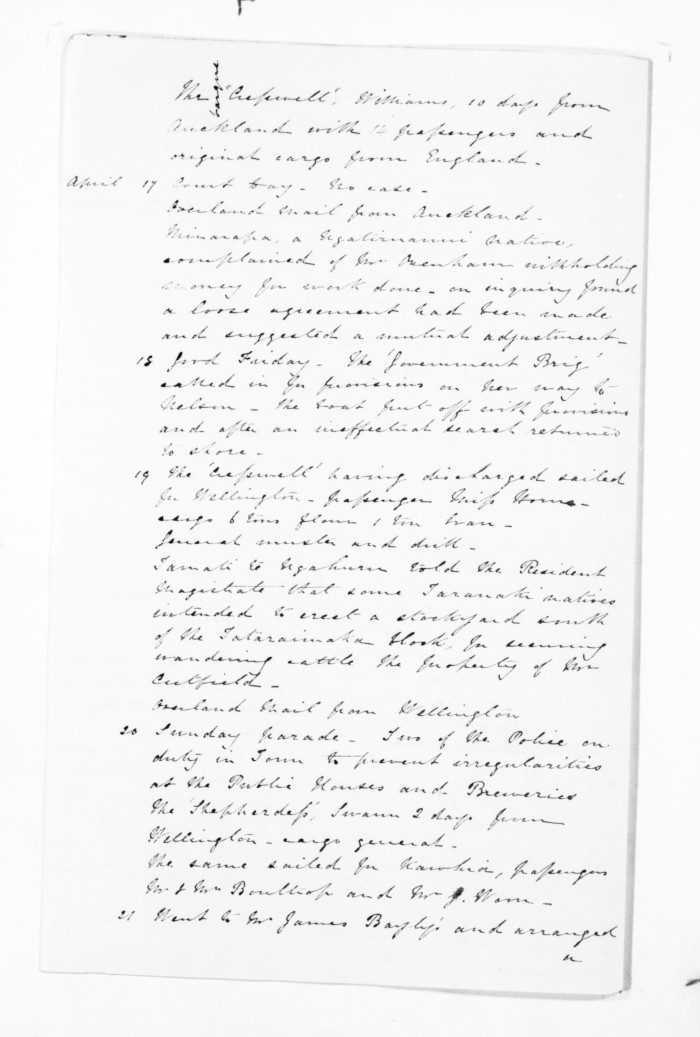 The barque 'Cresswell', Williams, 10 days from
Auckland with 12 passengers and
original cargo from England -
April 17 Court Day - No case -
Overland Mail from Auckland -
Minarapa, a Ngatiruanui native,
complained of Mr Oxenham withholding
money for work done - on inquiry found
a loose agreement had been made
and suggested a mutual adjustment -
18 Good Friday - The 'Government Brig'
called in for provisions on her way to
Nelson - the boat put off with provisions
and after an ineffectual search returned
to shore -
19 The 'Cresswell' having discharged sailed
for Wellington - passenger Miss Horne -
cargo 6 tons flour 1 ton bran -
General muster and drill -
Tamati te Ngahuru told the Resident
Magistrate that some Taranaki natives
intended to erect a stockyard south
of the Tataraimaka block, for securing
wandering cattle the property of Mr
Cutfield -
Overland Mail from Wellington
20 Sunday parade - Two of the Police on
duty in Town to prevent irregularities
at the Public Houses and Breweries
The 'Shepherdess', Swann 2 days from
Wellington - cargo general -
The same sailed for Kawhia, passengers
Mr & Mrs and Mr J.
21 Went to Mr James Bayly's and arranged